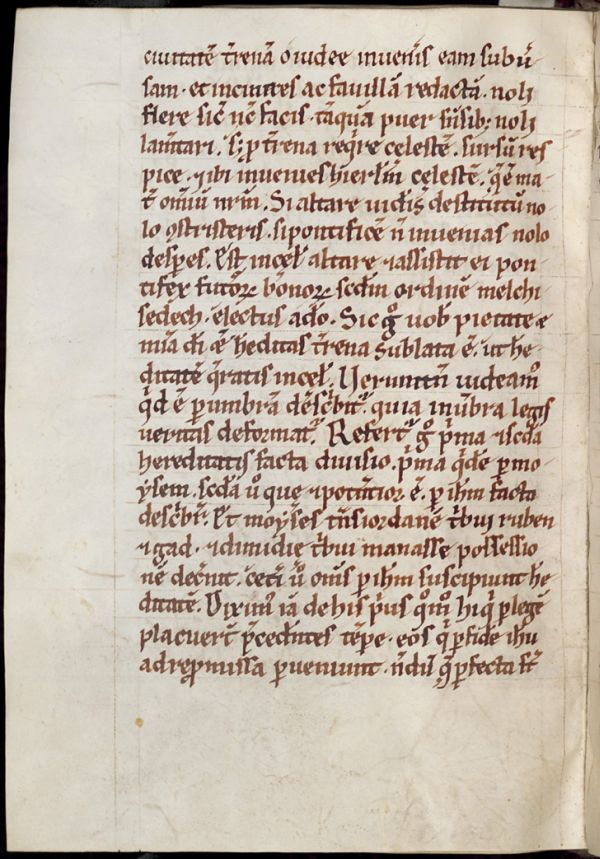 ciuitatē t̄renā o iudee inuenis eam subū
sam · et inciuites ac fauillā redactā · noli
flere sic̄ nc̄ facis · tāquā puer fūsib; noli
lam̄tari · s; ꝑ t̄rena req̄re celestē · sursū res
pice · ⁊ ibi inuenies hierl̄m celestē · q̄ ē ma
t̄ om̄iū nr̄m · Si altare uid̄is destitutū no
lo ꝯtristeris · si pontificē n̄ inuenias nolo
desꝑes · Est in cel̄ altare ⁊ assistit ei pon
tifex futōꝝ bonoꝝ scd̄m ordinē melchi
sedech · electus a do̅ · Sic g̊ uob̄ pietate ⁊
mīa dī ē h̄editas t̄rena sublata ē · ut he
ditatē q̄ratis in cel̄ · Ueruntn̄ uideam᷒
q̄d ē ꝑ umbrā desc̄bit᷑ · quia in ūbra legis
ueritas deformat᷑ · Refert᷑ g̊ p̄ma ⁊ scd̄a
hereditatis facta diuisio · p̄ma q̄de ꝑ mo
ysem · scd̄a ů que ⁊ potentior ē · ꝑ ih̄m facta
desc̄bit᷑ · Et moyses t̄ns iordanē t̄bui ruben
⁊ gad · ⁊ dimidie t̄bui manasse possessio
nē dec̄nit · cet̄i ů om̄s ꝑ ih̄m suscipiunt he
ditatē · Dixim᷒ iā de his p̄us qm̊ hi q̇ ꝑ legē
placuer̄t p̄cedentes tēpe · eos q̇ ꝑ fidē ih̄u
ad rep̄missa ꝑueniunt · n̄dū q̄ ꝑfecta st̄